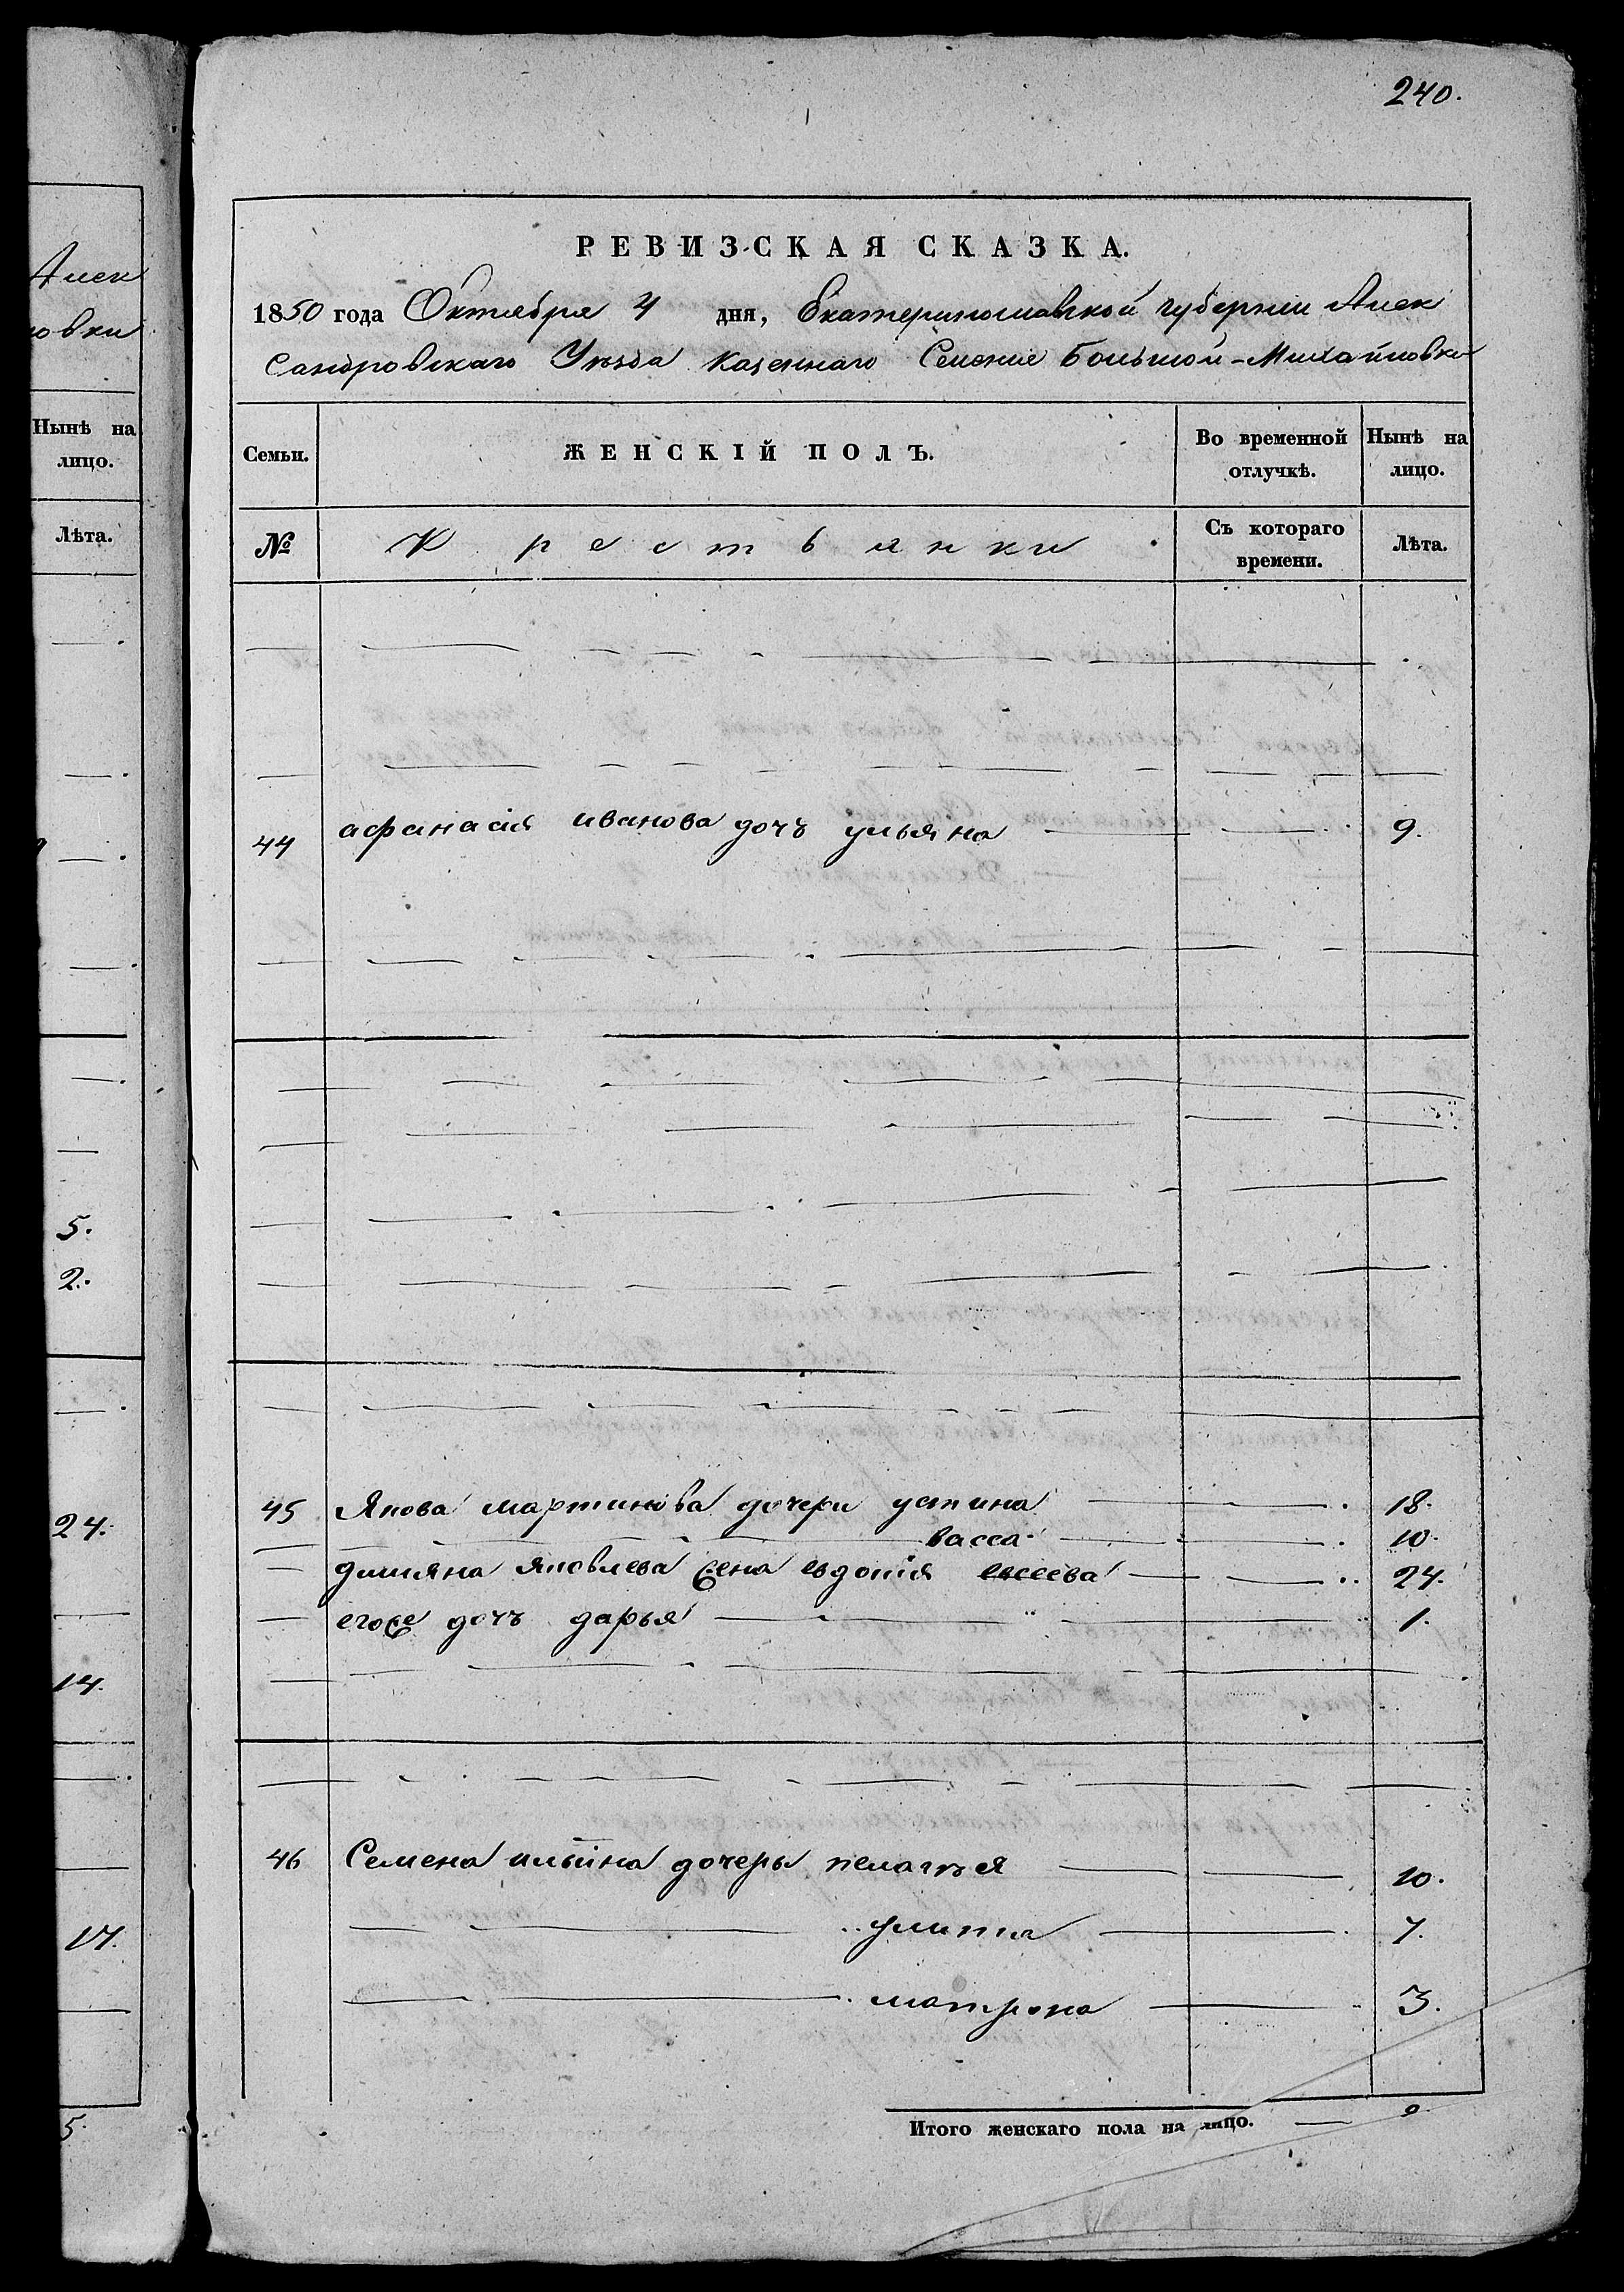 Алек
овки
Нынѣ на
лицо.
Лѣта.
5.
2.
24.
14.
17.
5.
240.
РЕВИЗСКАЯ СКАЗКА.
1850 года Октября 4 дня, Екатеринославской губернии Алек
сандровскаго Уѣзда казеннаго Селение Большой-Михайловки
Семьи. ЖЕНСКІЙ ПОЛЪ. Во временной отлучкѣ. Нынѣ на лицо.
№ Крестьянки Съ котораго времени. Лѣта.
44 афанасія иванова дочъ ульяна 9.
45 Якова мартинова дочери устина 18.
васса 10.
димяна яковлева жена евдокія евсеева 24.
егоже дочъ дарья 1.
46 Семена ильїна дочеры пелагѣя 10.
улита 7.
матрона 3.
Итого женскаго пола на лицо.